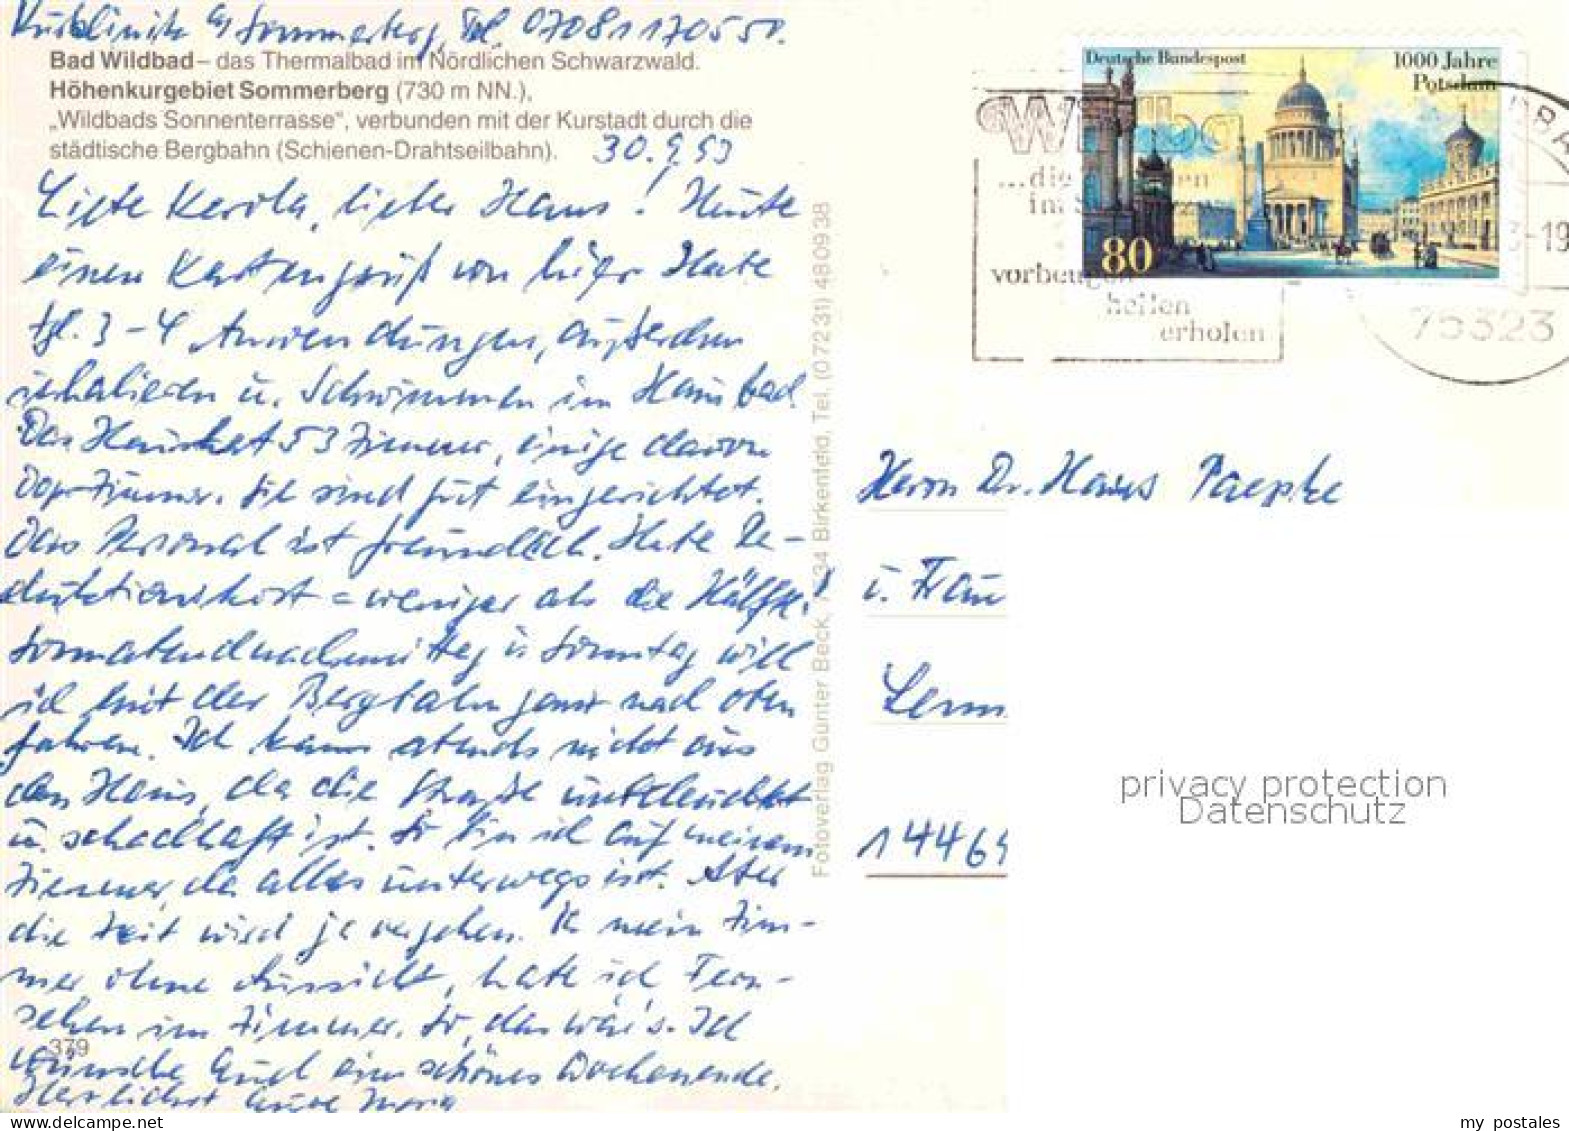 Kurklinik a/ Sommerberg, Tel. 07081 170550.
Bad Wildbad – das Thermalbad im Nördlichen Schwarzwald.
Höhenkurgebiet Sommerberg (730 m NN.),
„Wildbads Sonnenterrasse“, verbunden mit der Kurstadt durch die
städtische Bergbahn (Schienen-Drahtseilbahn). 30.9.93
Liebe Karola, lieber Hans! Heute
einen Kartengruß von hier. Habe
tgl. 3-4 Anwendungen, außerdem
inhalieren u. Schwimmen im Hausbad.
Das Haus hat 53 Zimmer, einige davon
Dop-Zimmer. Sie sind gut eingerichtet.
Das Personal ist freundlich. Habe Re-
duktionskost = weniger als die Hälfte!
Sonnabendnachmittag u. Sonntag will
ich mit der Bergbahn ganz nach oben
fahren. Ich kann abends nicht aus
dem Haus, da die Straße unbeleuchtet
u. schadhaft ist. So bin ich auf meinem
Zimmer, da alles unterwegs ist. Aber
die Zeit wird ja vergehen. In mein Zim-
mer ohne Aussicht, habe ich Fern-
sehen im Zimmer. So, das wär's. Ich
wünsche Euch ein schönes Wochenende.
Herzlichst Eure
379
Fotoverlag Günter Beck, 7534 Birkenfeld, Tel. (07231) 480938
Deutsche Bundespost
1000 Jahre
Potsdam
80
vorbeugen
heilen
erholen
75323
Herrn Dr. Hans Paepke
u. Frau
14469
privacy protection
Datenschutz
my postales
delcampe.net